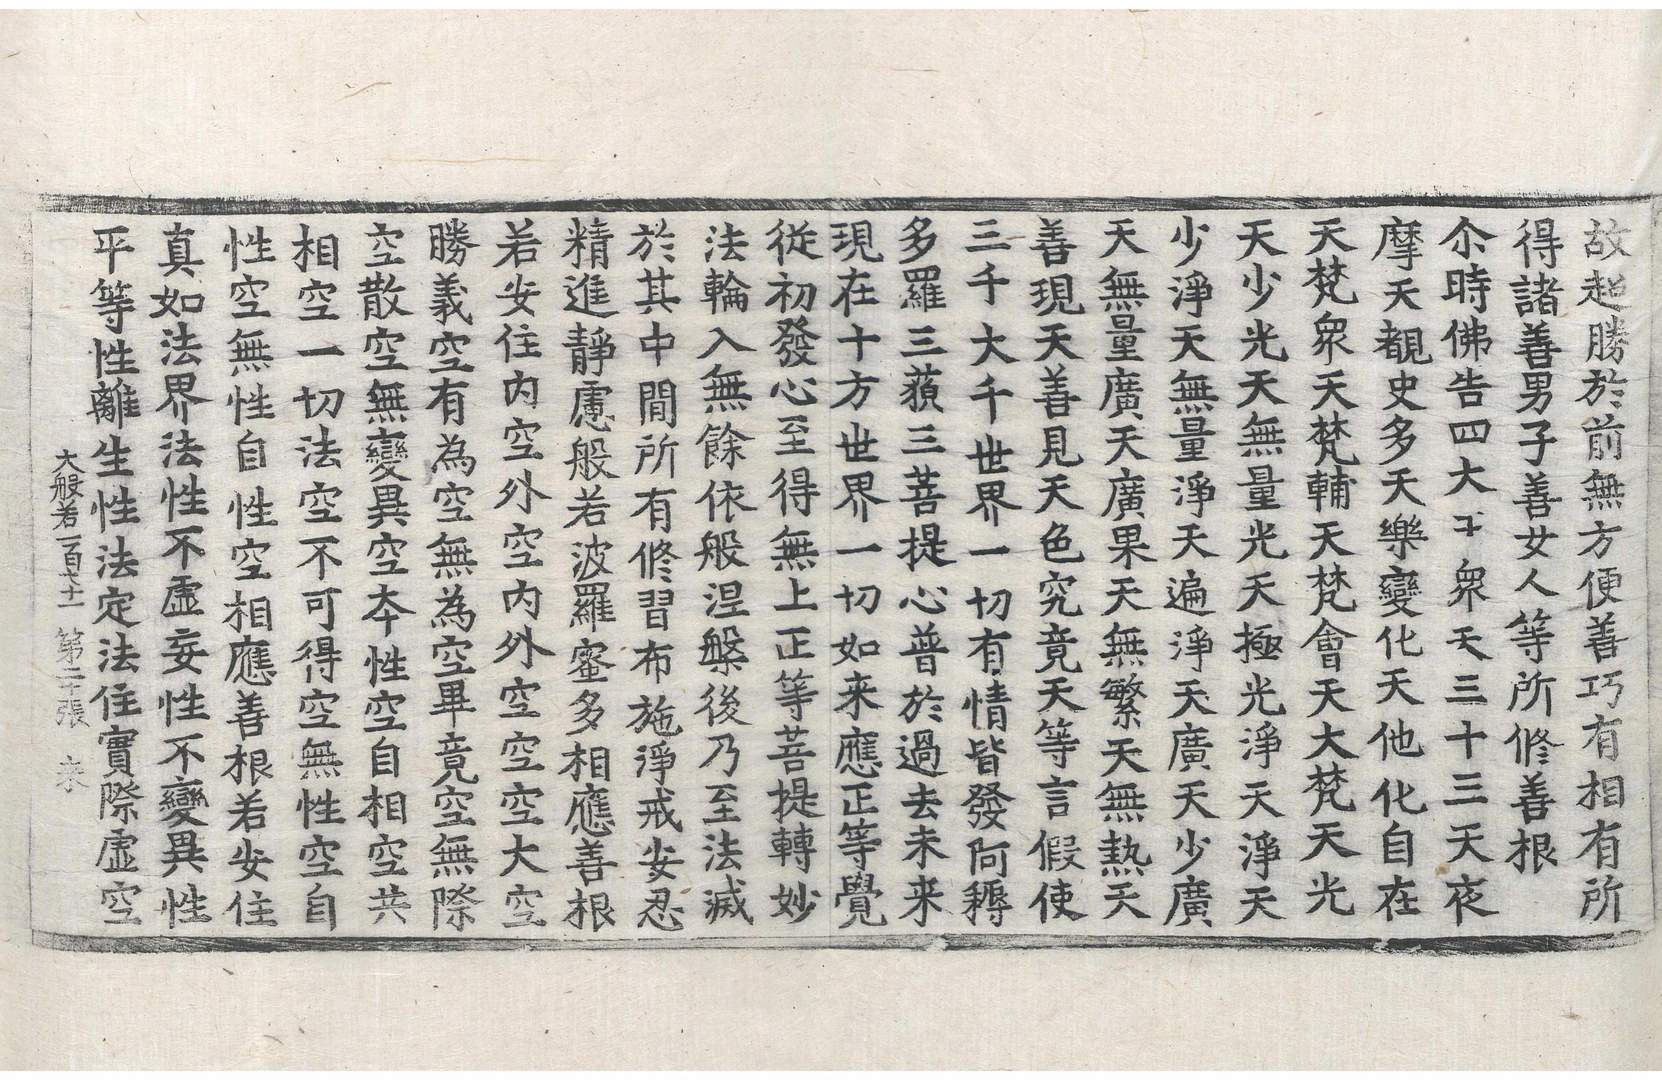 故超勝於前無方便善巧有相有所
得諸善男子善女人等所修善根
尒時佛告四大王衆天三十三天夜
摩天覩史多天樂變化天他化自在
天梵衆天梵輔天梵會天大梵天光
天少光天無量光天極光淨天淨天
少淨天無量淨天遍淨天廣天少廣
天無量廣天廣果天無繁天無熱天
善現天善見天色究竟天等言假使
三千大千世界一切有情皆發阿耨
多羅三藐三菩提心普於過去未来
現在十方世界一切如来應正等覺
從初發心至得無上正等菩提轉妙
法輪入無餘依般涅槃後乃至法滅
於其中間所有修習布施淨戒安忍
精進靜慮般若波羅蜜多相應善根
若安住内空外空内外空空空大空
勝義空有為空無為空畢竟空無際
空散空無變異空本性空自相空共
相空一切法空不可得空無性空自
性空無性自性空相應善根若安住
真如法界法性不虛妄性不變異性
平等性離生性法定法住實際虛空
大般若一百七十一 第二十張 来